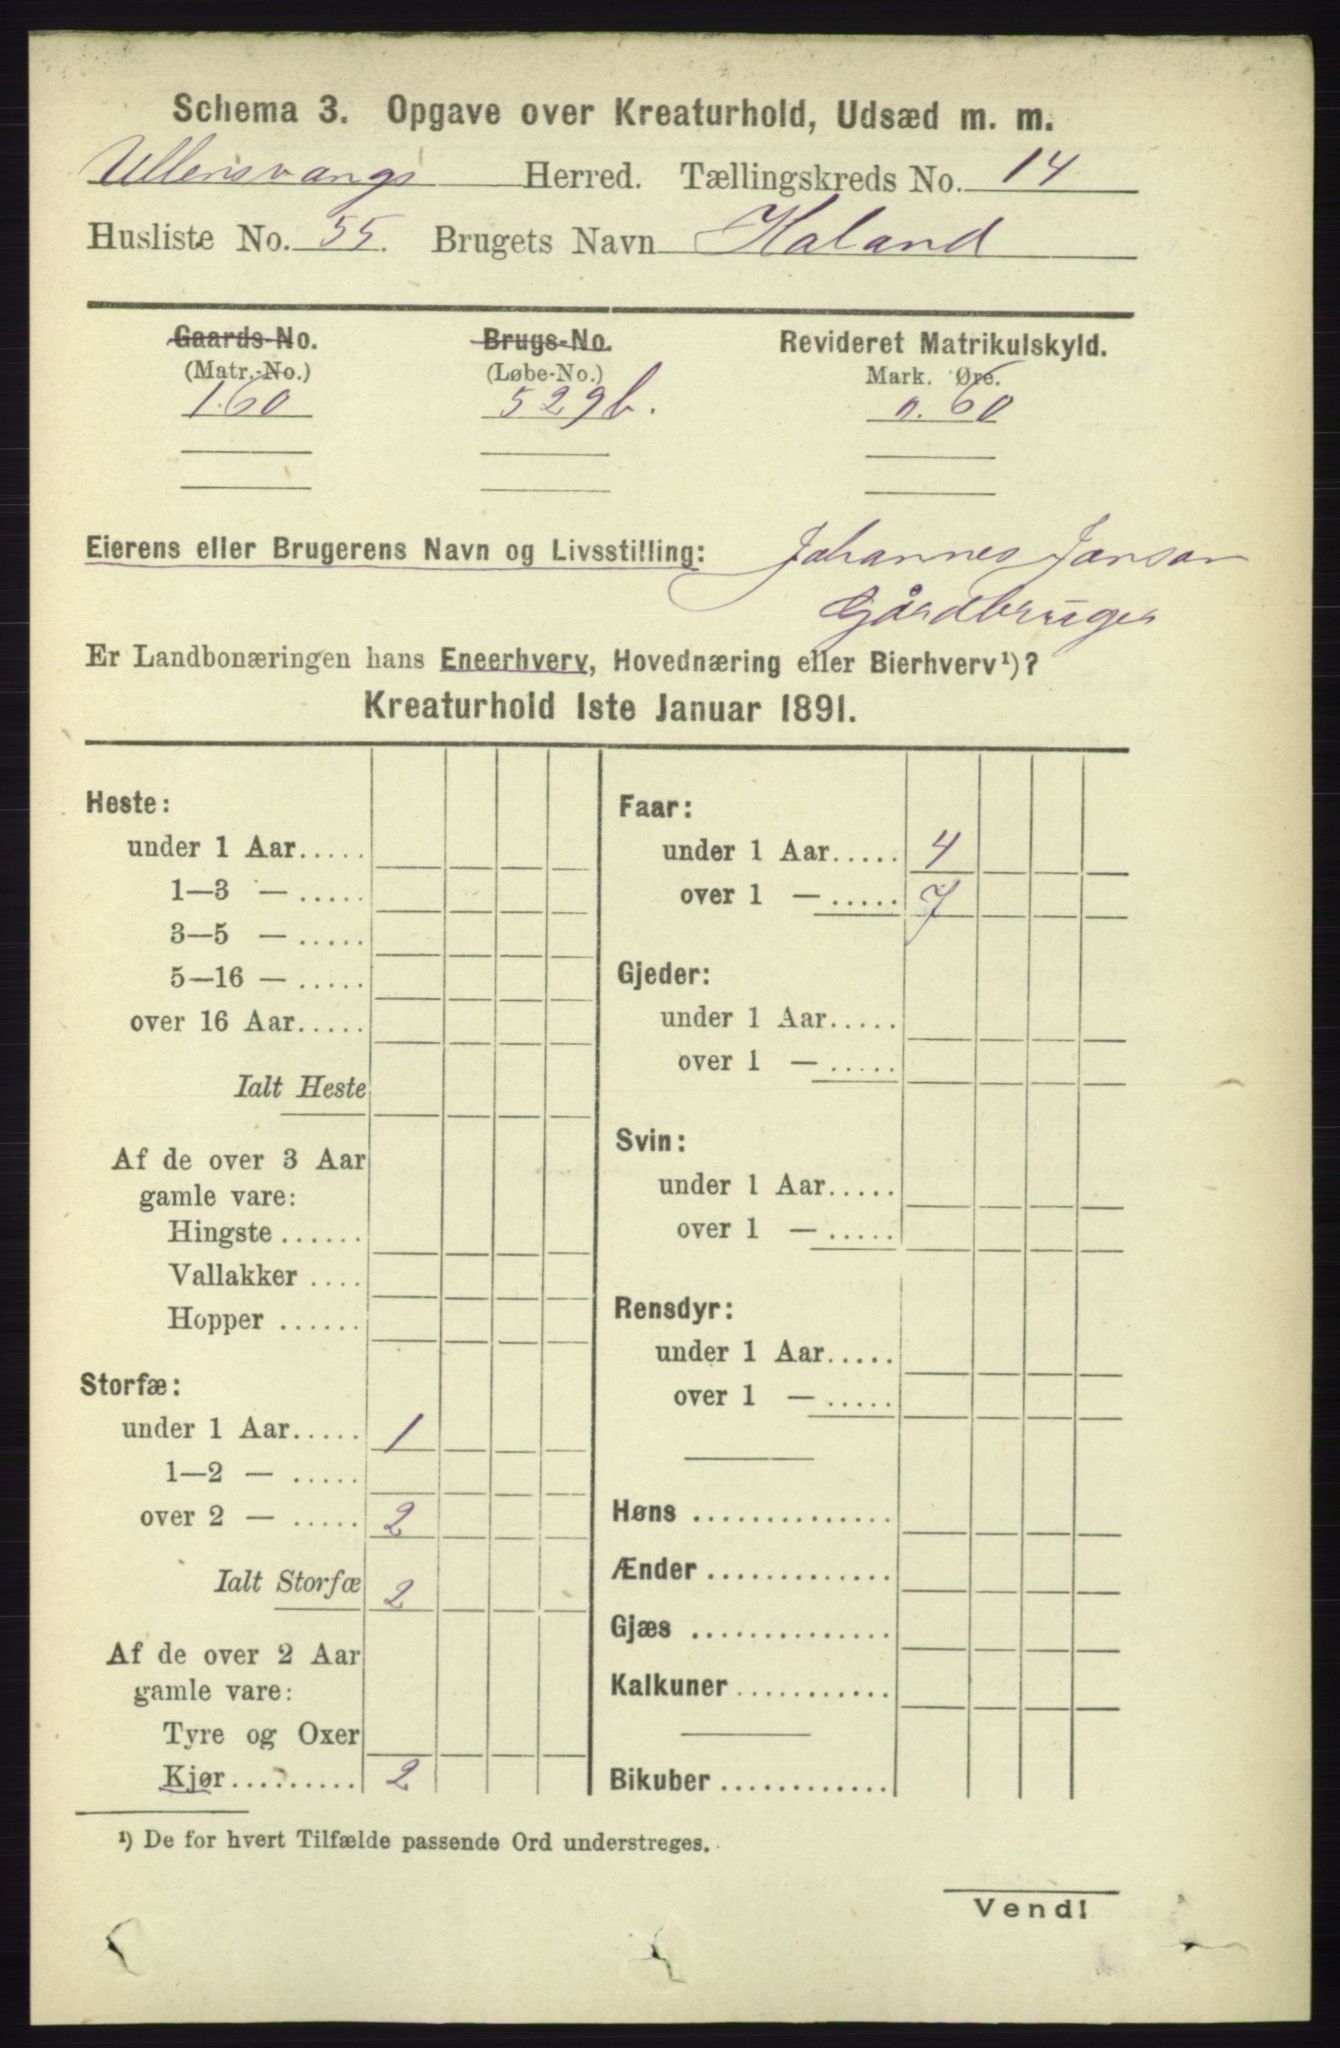 Schema 3. Opgave over Kreaturhold, Udsæd m. m.
Ullensvangs Herred. Tællingskreds No. 14
Husliste No. 55. Brugets Navn Haland
Gaards-No. Brugs-No. Revideret Matrikulskyld.
(Matr.-No.) (Løbe-No.) Mark. Øre.
160 529b. 0.60
Eierens eller Brugerens Navn og Livsstilling: Johannes Janson
Gårdbruger
Er Landbonæringen hans Eneerhverv, Hovednæring eller Bierhverv¹)?
Kreaturhold 1ste Januar 1891.
Heste:
under 1 Aar.....
1—3 — .....
3—5 — .....
5—16 — .....
over 16 Aar.....
Ialt Heste
Af de over 3 Aar
gamle vare:
Hingste ......
Vallakker ....
Hopper ......
Storfæ:
under 1 Aar..... 1
1—2 — .....
over 2 — ..... 2
Ialt Storfæ 2
Af de over 2 Aar
gamle vare:
Tyre og Oxer
Kjør.......... 2
Faar:
under 1 Aar..... 4
over 1 — ..... 7
Gjeder:
under 1 Aar.....
over 1 — .....
Svin:
under 1 Aar.....
over 1 — .....
Rensdyr:
under 1 Aar.....
over 1 — .....
Høns ..............
Ænder .............
Gjæs ..............
Kalkuner...........
Bikuber ............
¹) De for hvert Tilfælde passende Ord understreges.
Vend!